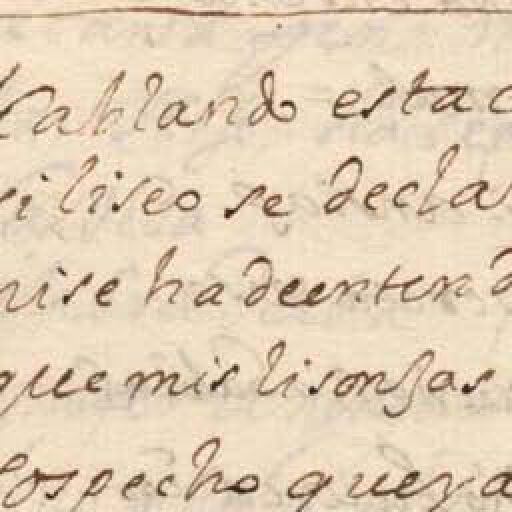 Hablando esta c
si liseo se decla
ni se ha de entend
que mis lisonjas
sospecho que ya